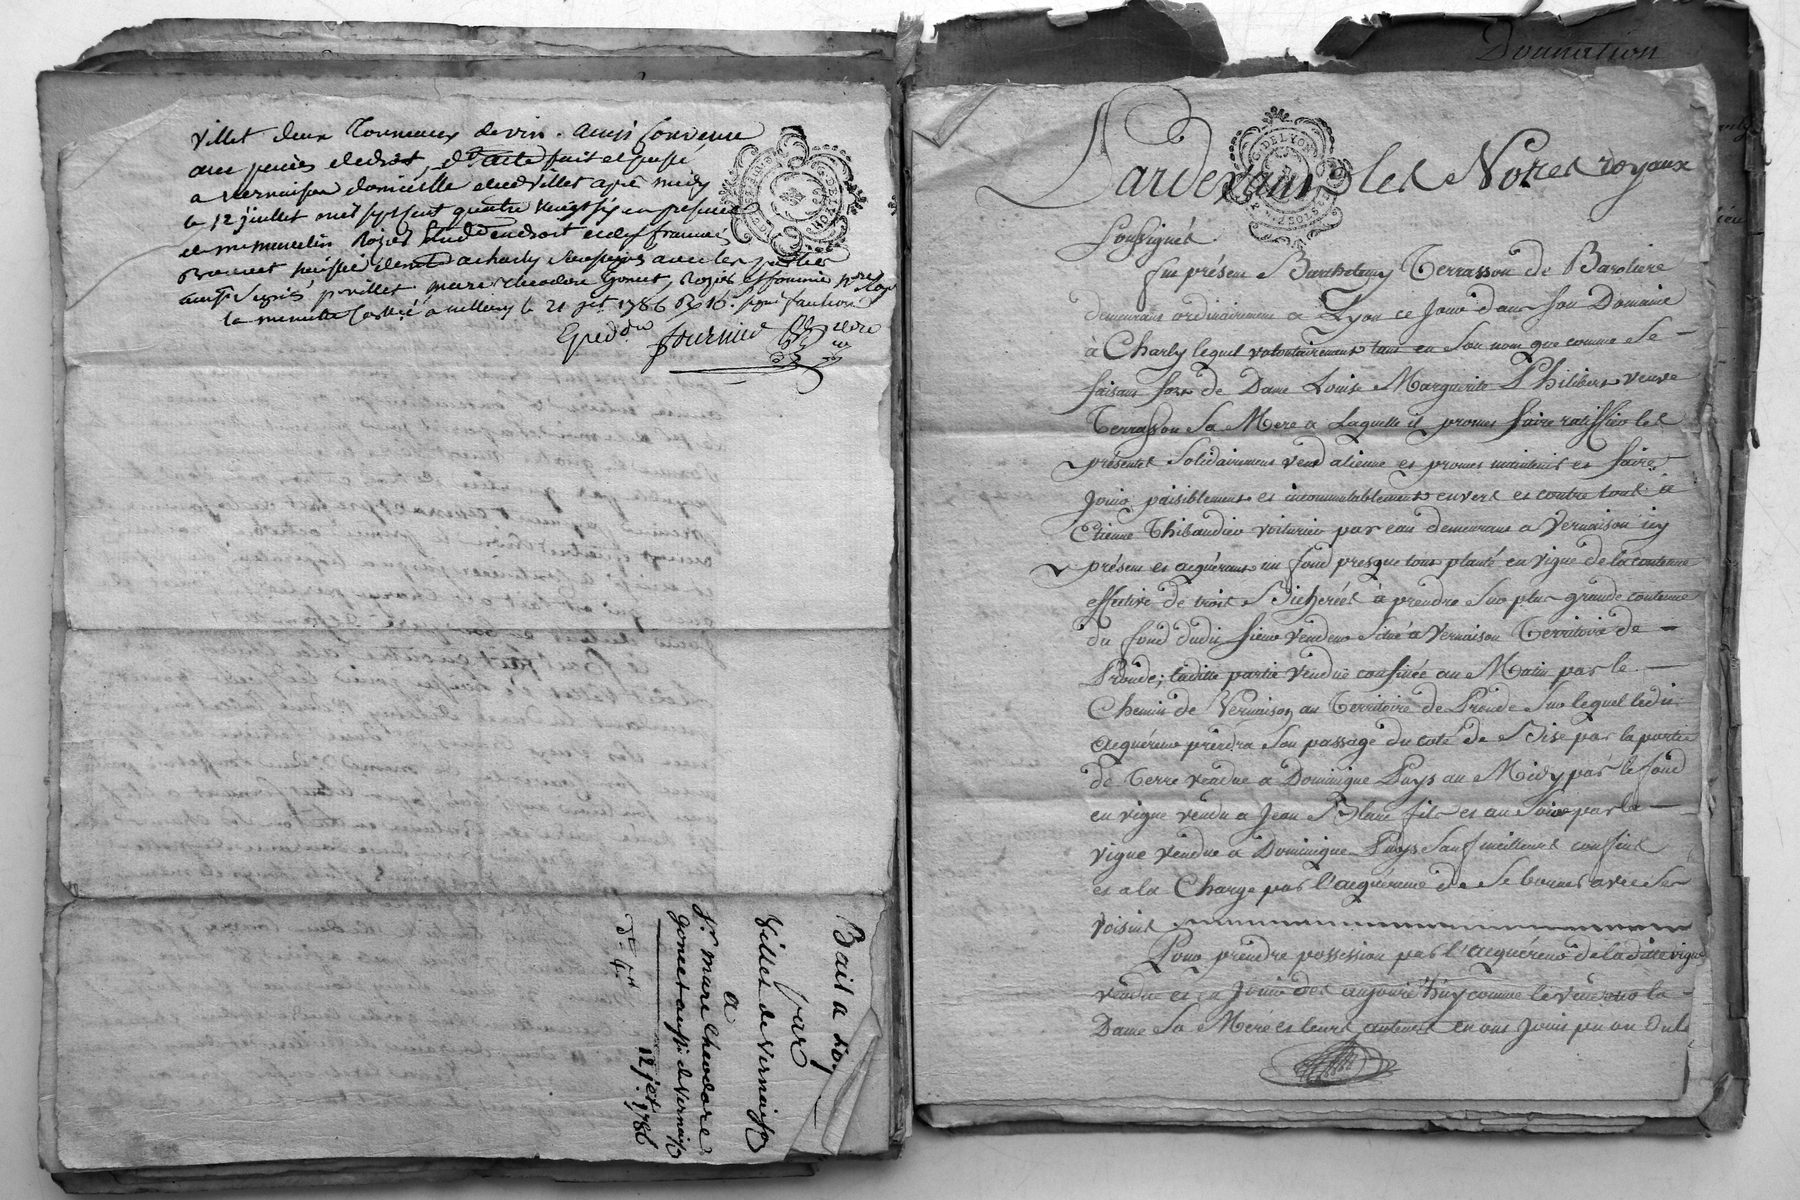 villet deux Tonneaux de vin. ainsi convenu
aux peines de droit, d'acte fait et passé
a vernaison domicille dud villet aprè midy
le 12 juillet mil sept cent quatre vingt six en presence
de me marcelin Rozier
la minutte à millery le 21 jet 1786
Exped.on fournier
Bail a loy.
par
Villet de Vernaison
a
Sr. marc theodore
gonet aussi d. Vernaison
12 jet. 1786
Donnation
G. DE LYON
Pardevant les Notes royaux
soussignés
fut présent Barthelemy Terrasson de Barolière
demeurant ordinairement a Lyon ce jour dans son Domaine
à Charly lequel volontairement tant en son nom que comme se
faisant fort de Dame Louise Marguerite Philibert veuve
Terrasson sa Mere a Laquelle il promet faire ratiffier les
présentes solidairement vend aliene et promet maintenir et faire
jouir paisiblement et incommutablement envers et contre tous à
Etienne Thibaudier voiturier par eau demeurant a Vernaison icy
présent et acquérant un fond presque tout planté en vigne de la contenue
effective de trois Bicherées a prendre sur plus grande contenue
du fond dudit sieur vendeur situé a Vernaison Territoire de
Pronde; ladite partie vendue confinée au Matin par le
Chemin de Vernaison au Territoire de Pronde sur lequel ledit
acquéreur prendra son passage du coté de Bise par la partie
de Terre vendue a Dominique Puys au Midy par le fond
en vigne vendu a Jean Blanc fils et au Soir par la
vigne vendue a Dominique Puys sauf meilleurs confins
et a la Charge par l'acquéreur de se borner avec ses
voisins
Pour prendre possession par l'acquéreur de la ditte vigne
vendue et en jouir des aujourd'huy comme le vendeur la
Dame sa Mere et leurs auteurs en ont joui pu ou dule